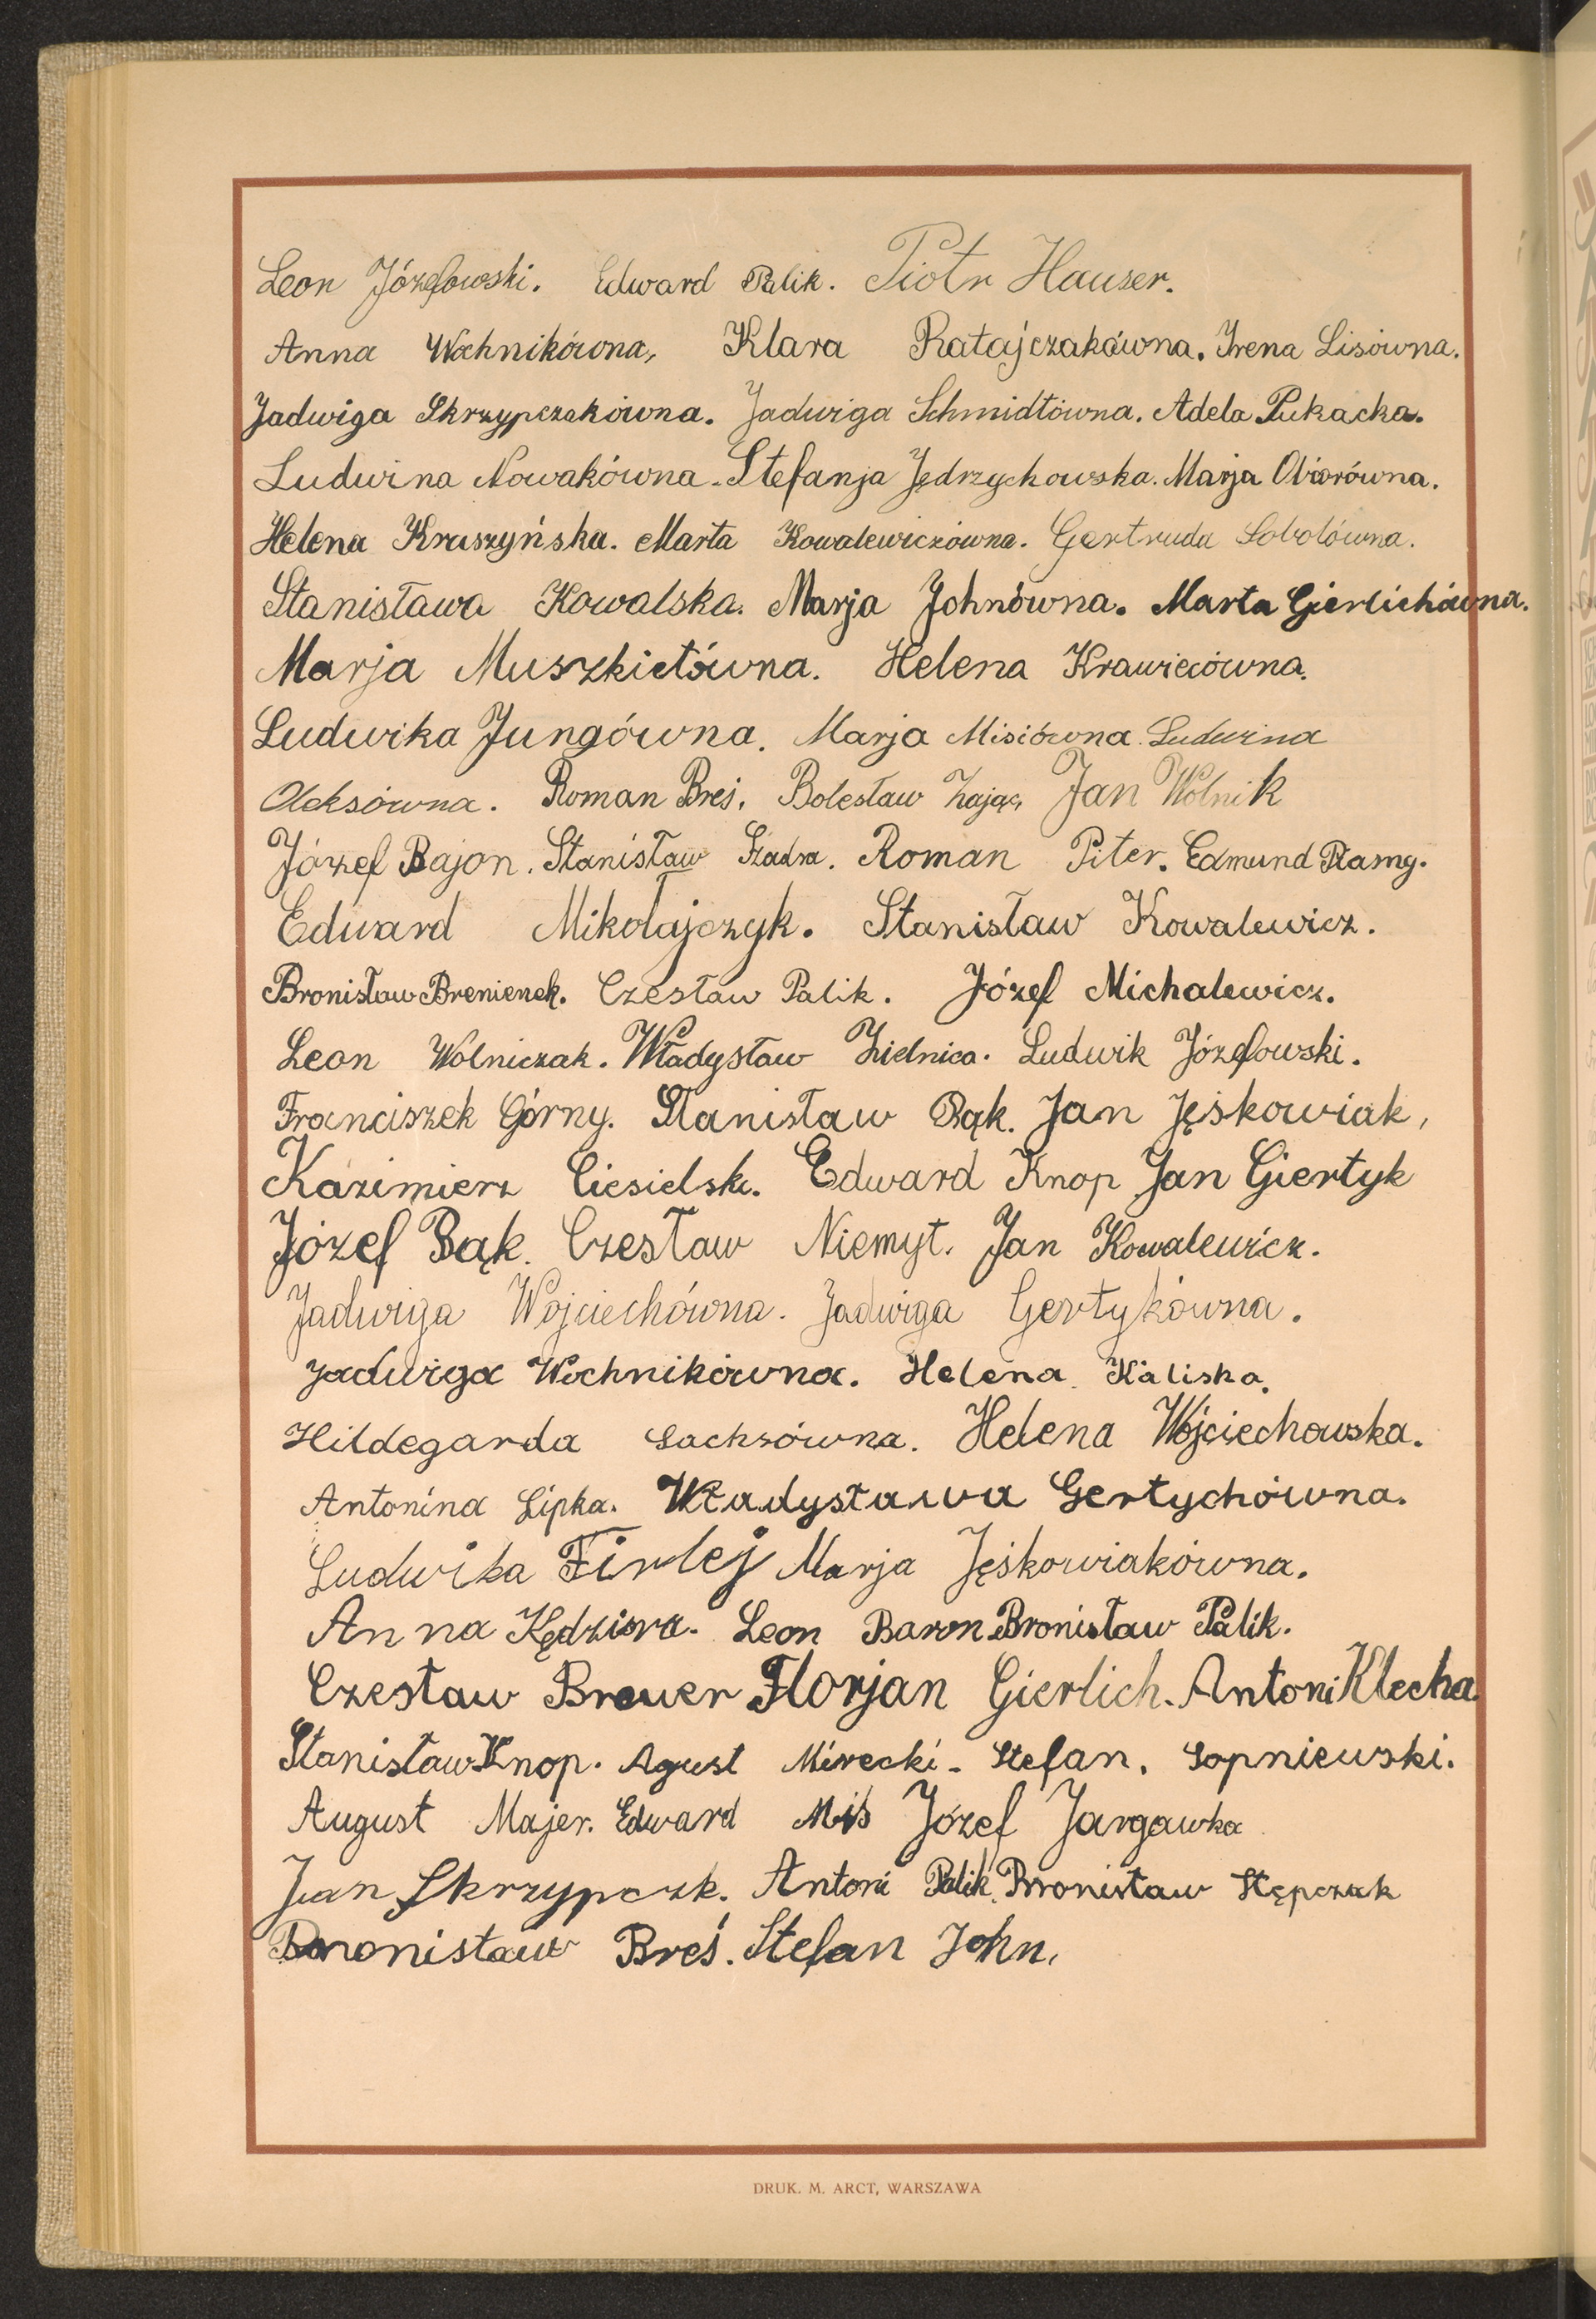 Leon Józefowski. Edward Palik. Piotr Hauser.
Anna Wochnikówna, Klara Ratajczakówna. Irena Lisówna.
Jadwiga Skrzypczakówna. Jadwiga Schmidtówna. Adela Pukacka.
Ludwina Nowakówna. Stefanja Jędrzychowska. Marja
Helena Kruszyńska. Marta Kowalewiczówna. Gertruda Sobolówna.
Stanisława Kowalska. Marja Johnówna. Marta Gierlichówna.
Marja Muszkietówna. Helena Krawiecówna.
Ludwika Jungówna. Marja Misiówna. Ludwina
Oleksówna. Roman Breś. Bolesław Zając, Jan Wolnik
Józef Bajon. Stanisław Roman Piter. Edmund
Edward Mikołajczyk. Stanisław Kowalewicz.
Bronisław Brenienek. Czesław Palik. Józef Michalewicz.
Leon Wolniczak. Władysław Zielnica. Ludwik Józefowski.
Franciszek Górny. Stanisław Bąk. Jan Jęśkowiak,
Kazimierz Ciesielski. Edward Knop Jan Giertyk
Józef Bąk. Czesław Niemyt. Jan Kowalewicz.
Jadwiga Wojciechówna. Jadwiga Gertykówna.
Jadwiga Wochnikówna. Helena Kaliska.
Hildegarda Sachsówna. Helena Wojciechowska.
Antonina Lipka. Władysława Gertychówna.
Ludwika Firlej Marja Jęśkowiakówna.
Anna Kędziora. Leon Baron Bronisław Palik.
Czesław Breuer Florjan Gierlich. Antoni Klecha.
Stanisław Knop. Agust Mirecki. Stefan. Sopniewski.
August Majer. Edward Miś Józef Jargawka
Jan Skrzypczk. Antoni Palik. Bronisław Stępczak
Bronisław Breś. Stefan John.
DRUK. M. ARCT, WARSZAWA